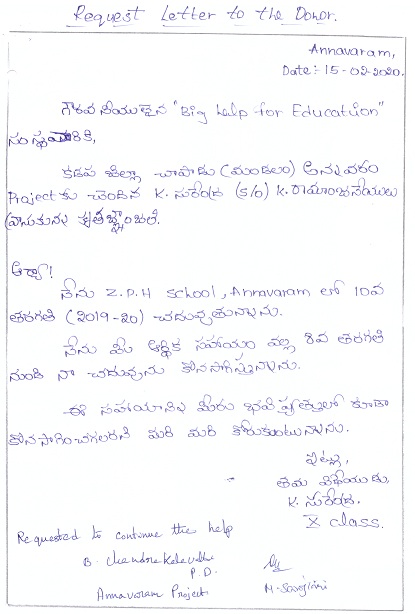 Request Letter to the Donor.
Annavaram,
Date:- 15-02-2020.
గౌరవనీయులైన "Big help for Education"
సంస్థవారికి,
కడప జిల్లా చాపాడు (మండలం) అన్నవరం
Project కు చెందిన K. సురేంద్ర (S/o) K. రామాంజనేయులు
వ్రాయునది
ఆర్యా!
నేను Z.P.H School, Annavaram లో 10వ
తరగతి (2019-20) చదువుతున్నాను.
నేను మీ ఆర్థిక సహాయం వల్ల 8వ తరగతి
నుండి నా చదువును కొనసాగిస్తున్నాను.
ఈ సహాయాన్ని మీరు భవిష్యత్తులో కూడా
కొనసాగించగలరని మరి మరి కోరుకుంటున్నాను.
ఇట్లు,
తమ విధేయుడు,
K. సురేంద్ర.
X class.
Requested to continue the help
B. Chandrakalavathi
P.D.
M. Sarojini
Annavaram Project